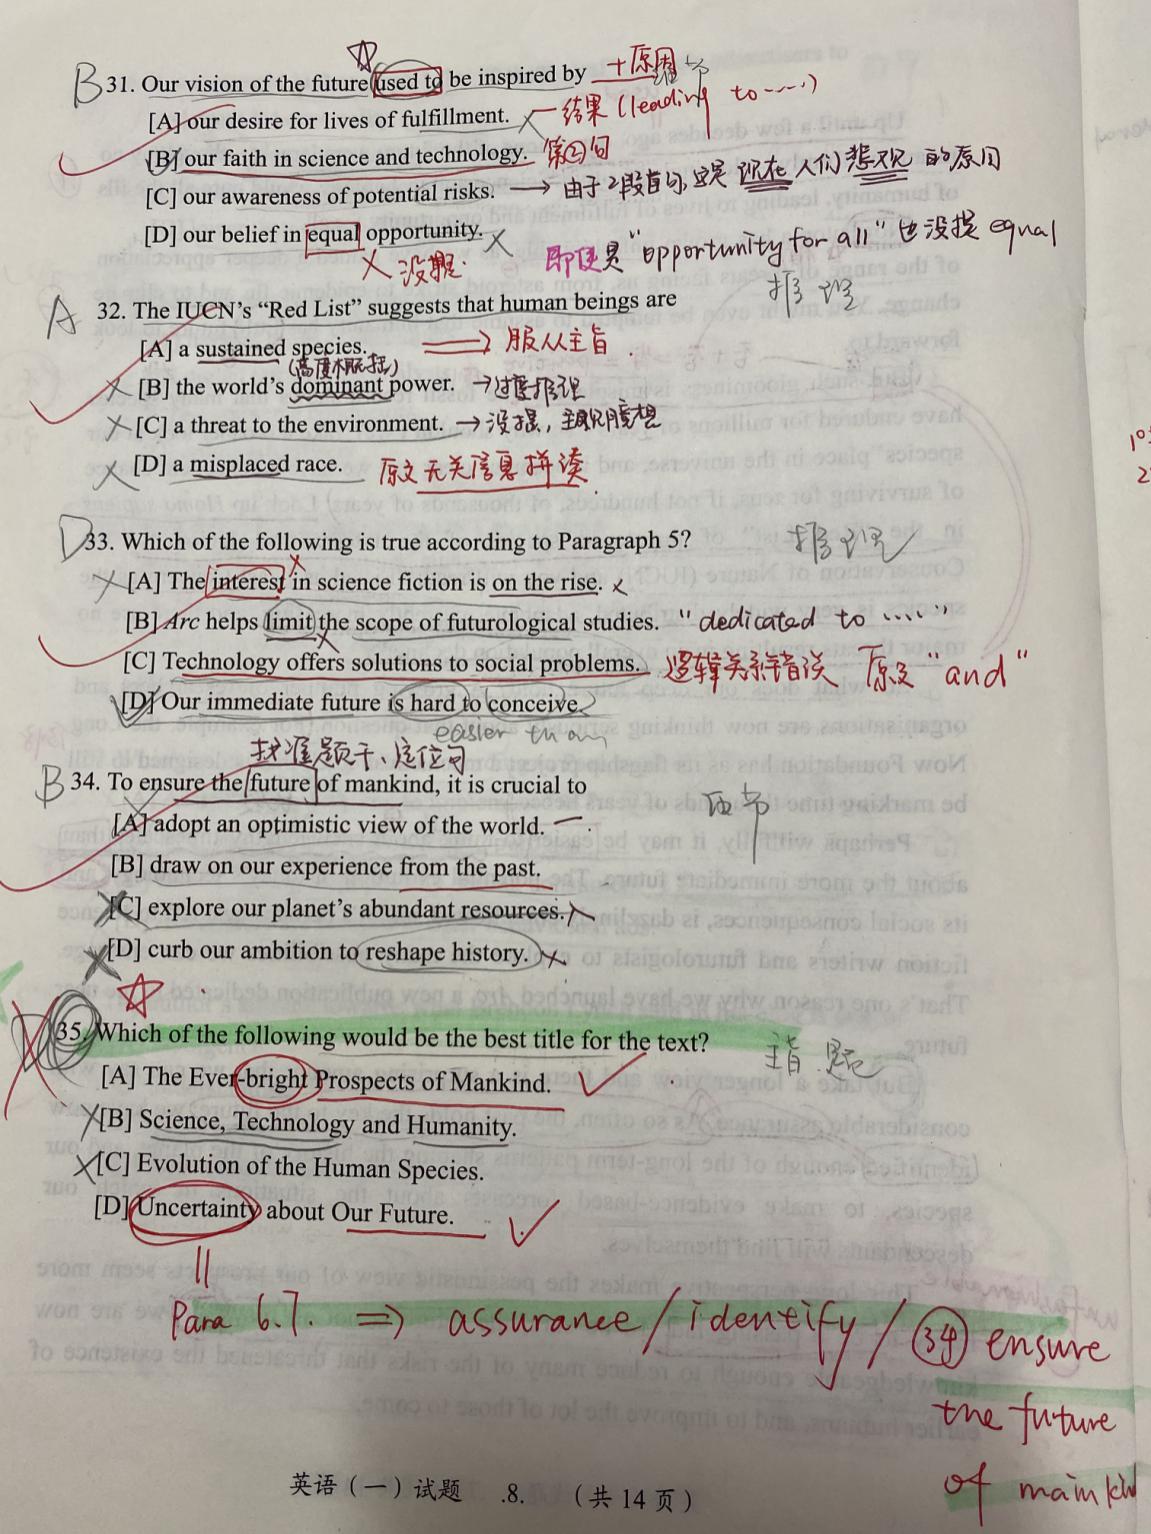 B 31. Our vision of the future used to be inspired by +原因 细节
[A] our desire for lives of fulfillment. 结果 (leading to ……)
[B] our faith in science and technology. 第②句
[C] our awareness of potential risks. → 由于2段首句, 这是现在人们悲观的原因
[D] our belief in equal opportunity. ×
× 没提. 即使是 "opportunity for all" 也没提 equal
A 32. The IUCN's "Red List" suggests that human beings are 推理
[A] a sustained species. ⇒ 服从主旨.
× [B] the world's dominant power. → 过度推理
× [C] a threat to the environment. → 没提, 主观臆想
× [D] a misplaced race. 原文无关信息拼凑
D 33. Which of the following is true according to Paragraph 5? 推理
× [A] The interest in science fiction is on the rise. ×
[B] Arc helps limit the scope of futurological studies. "dedicated to ……"
[C] Technology offers solutions to social problems. 逻辑关系错误 原文 "and"
[D] Our immediate future is hard to conceive.
easier than
找准题干、定位句
B 34. To ensure the future of mankind, it is crucial to 细节
[A] adopt an optimistic view of the world.
[B] draw on our experience from the past.
× [C] explore our planet's abundant resources. ×
× [D] curb our ambition to reshape history. ×
D 35. Which of the following would be the best title for the text? 主旨题
[A] The Ever-bright Prospects of Mankind.
× [B] Science, Technology and Humanity.
× [C] Evolution of the Human Species.
[D] Uncertainty about Our Future.
Para 6.7. ⇒ assurance / identify / 34 ensure
the future
of mainkid
英语（一）试题 .8. （共 14 页）